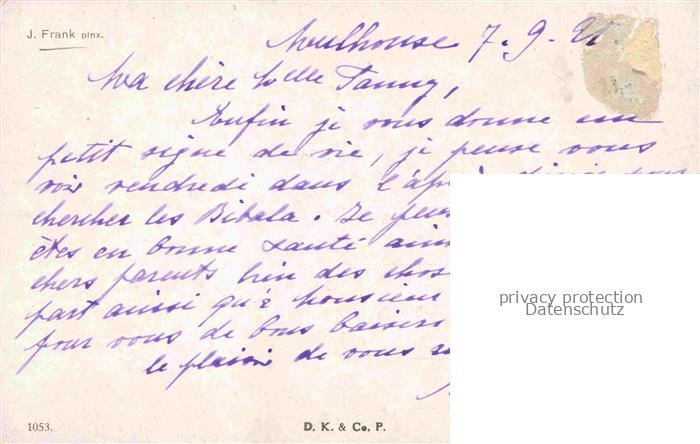 J. Frank pinx.
Mulhouse 7.-9.-21
Ma chère Melle Fanny,
Enfin je vous donne un
petit signe de vie, je pense vous
voir vendredi dans l'après
chercher les Bibala. Je
êtes en bonne santé
chers parents bien des
part ainsi qu'à Monsieur
pour vous de bons baisers
le plaisir de vous
privacy protection
Datenschutz
1053.
D. K. & Co. P.